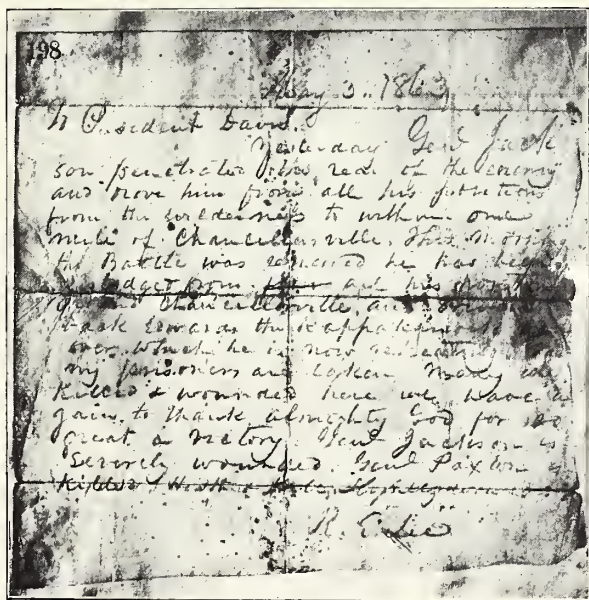 198
May 3. 1863
President Davis.
Yesterday Genl Jack
son penetrated the rear of the enemy
and drove him from all his positions
from the wilderness to within one
mile of Chancellorsville. This morning
the Battle was renewed he has been
dislodged from all his
around Chancellorsville, and
back towards the Rappahannock
over which he is now
my prisoners are taken Many were
killed & wounded here we have a
gain to thank almighty God for
great a victory. Genl Jackson is
Severely wounded. Genl Paxton is
Killed Heth
R. E. Lee